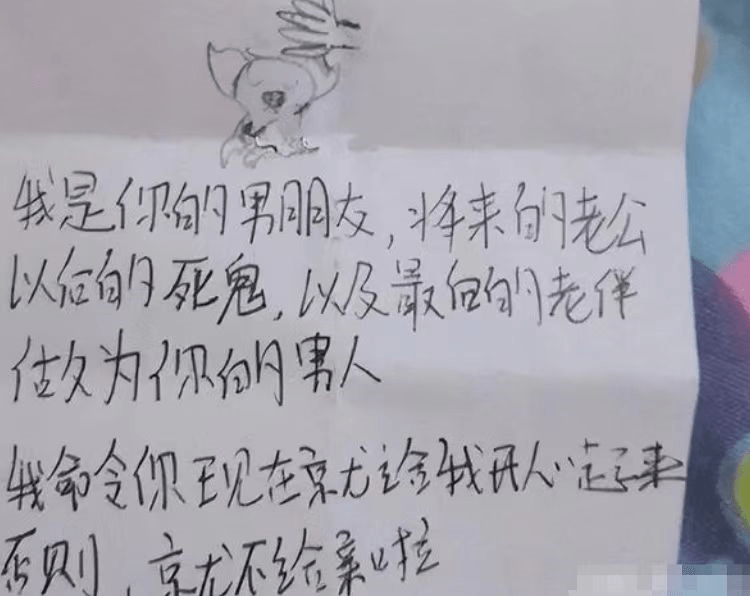 我是你的男朋友,将来的老公
以后的死鬼,以及最后的老伴
做为你的男人
我命令你现在就给我开心起来
否则,就不给亲啦